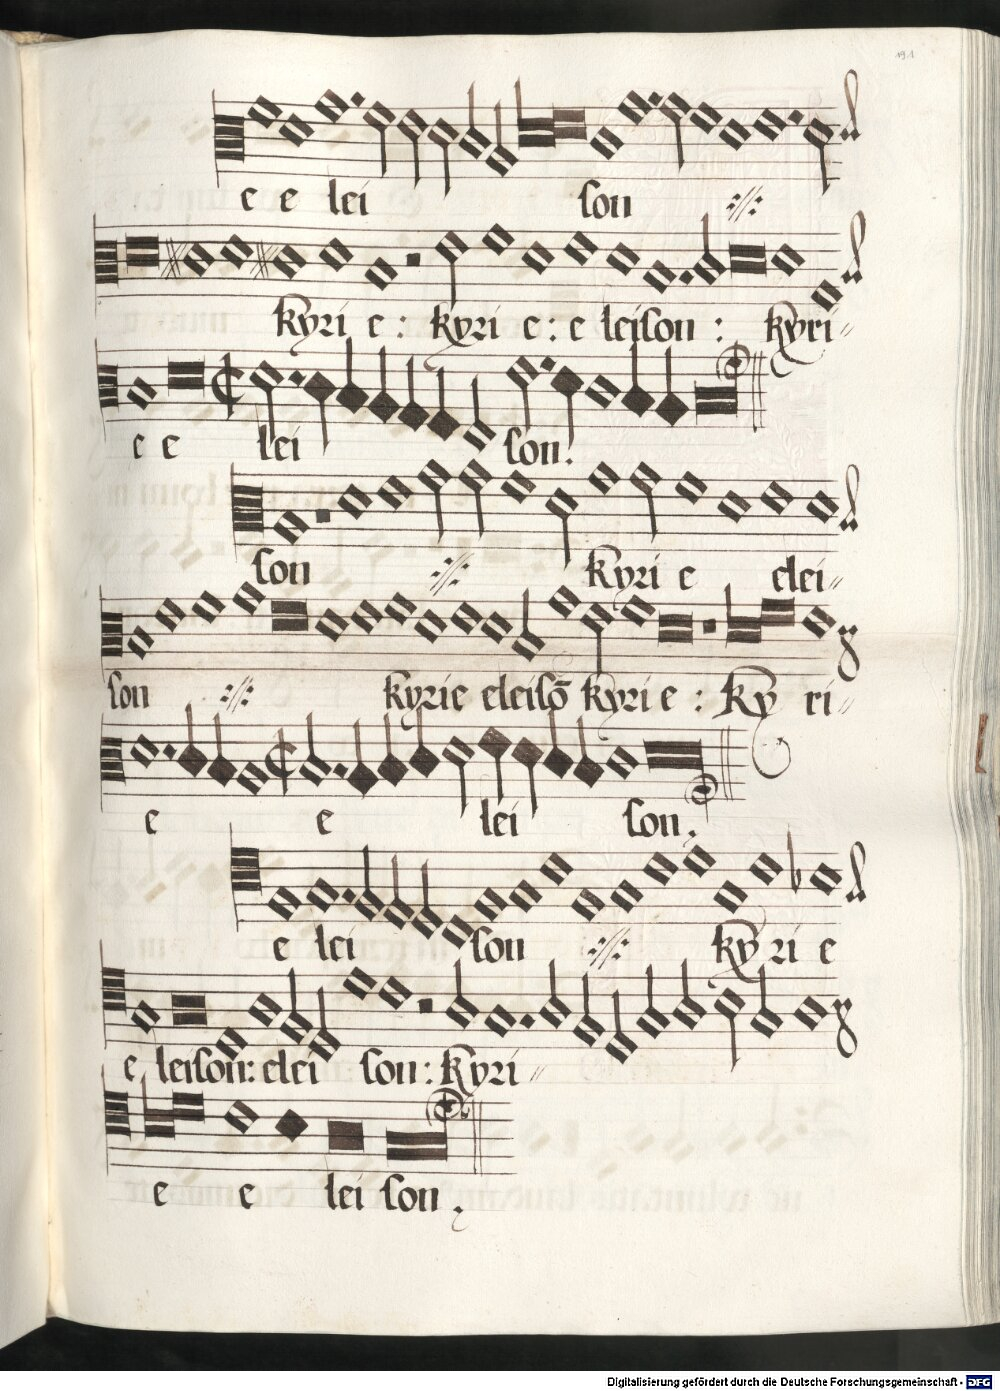 191
e e lei son ://:
kyri e : kyri e : e leison : kyri //
e e lei son.
son ://: kyri e elei //
son ://: kyrie eleisō kyri e : Ky ri //
e e lei son.
e lei son ://: ky ri e
e leison: elei son : kyri //
e e lei son.
Digitalisierung gefördert durch die Deutsche Forschungsgemeinschaft - DFG